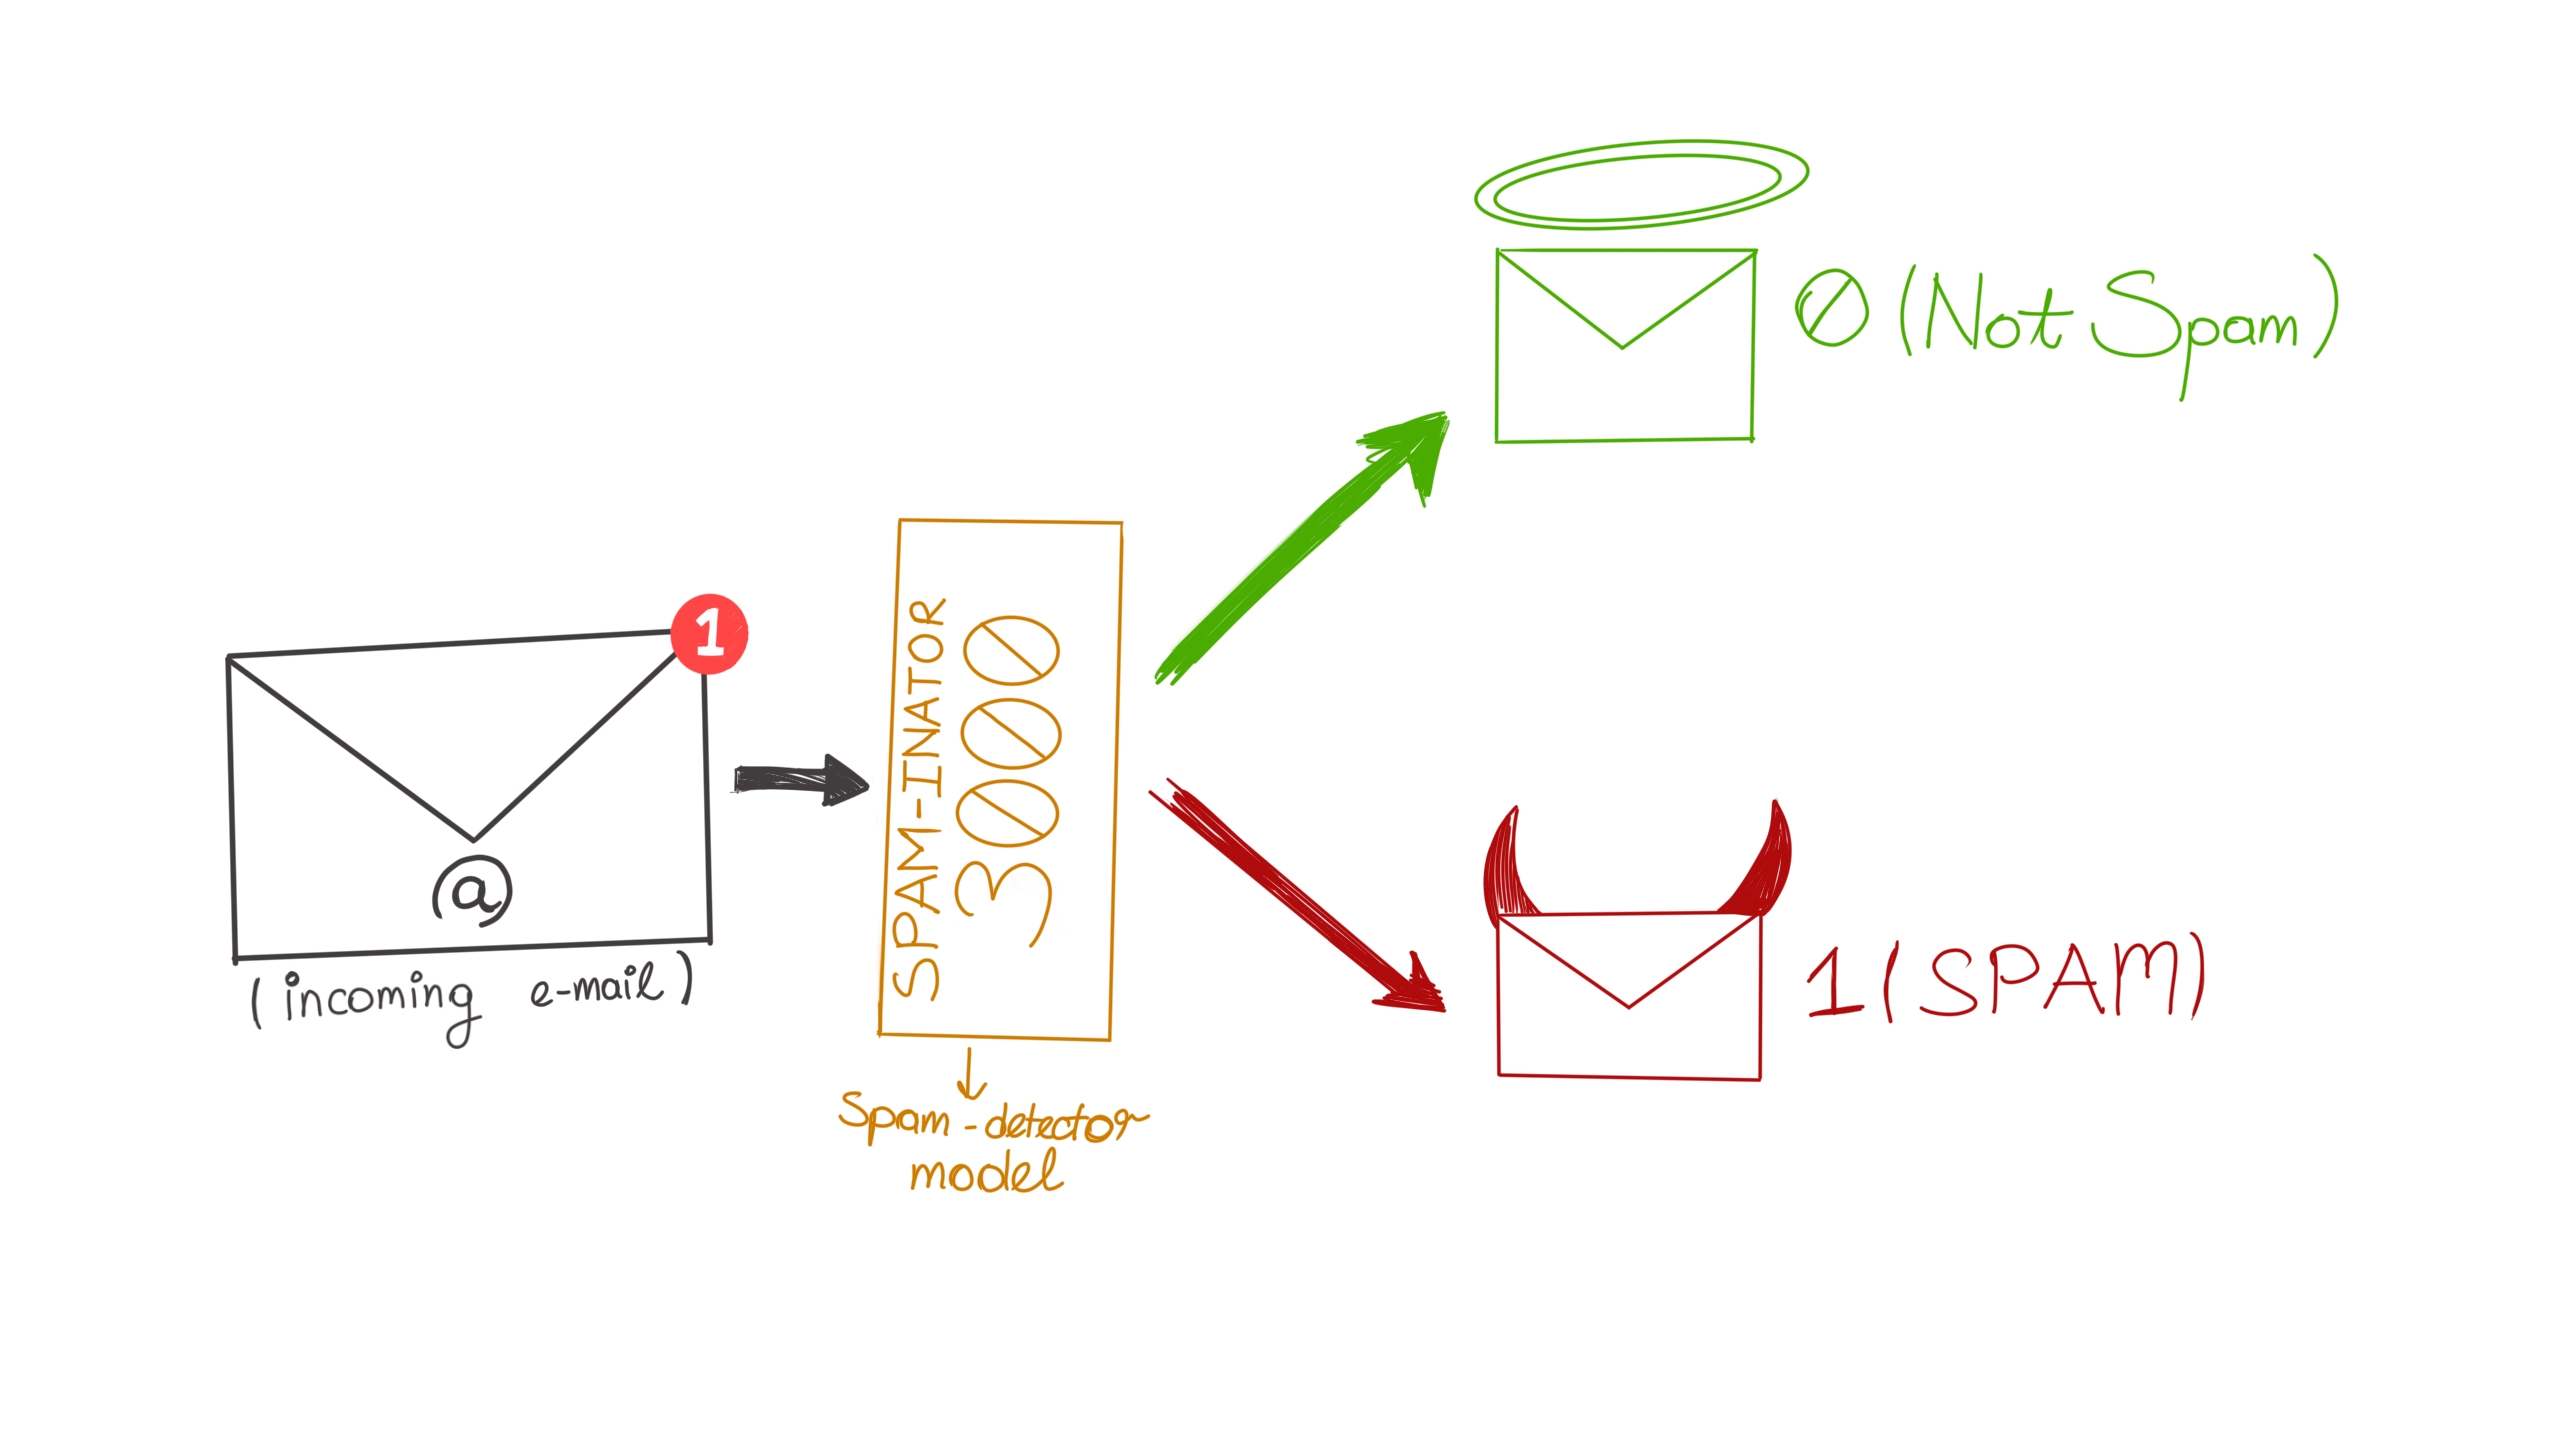 1
@
(incoming e-mail)
SPAM-INATOR
3000
Spam-detector
model
0 (Not Spam)
1 (SPAM)